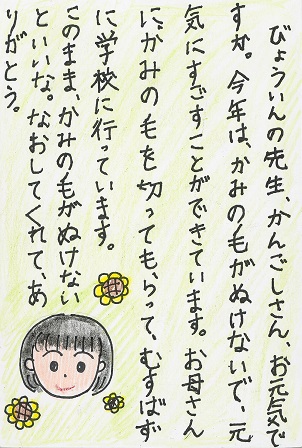 びょういんの先生、かんごしさん、お元気で
すか。今年は、かみの毛がぬけないで、元
気にすごすことができています。お母さん
にかみの毛を切ってもらって、むすばず
に学校に行っています。
このまま、かみの毛がぬけない
といいな。なおしてくれて、あ
りがとう。